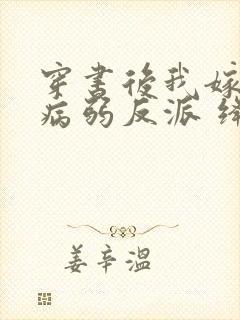 穿书後我嫁
病弱反派
姜辛溫